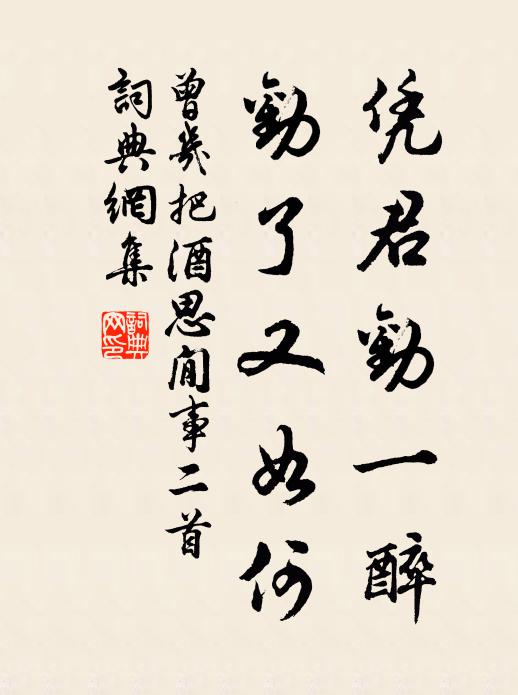 凭君勸一醉
勸了又如何
曾幾把酒思閒事二首
詞典網集
詞典
网印